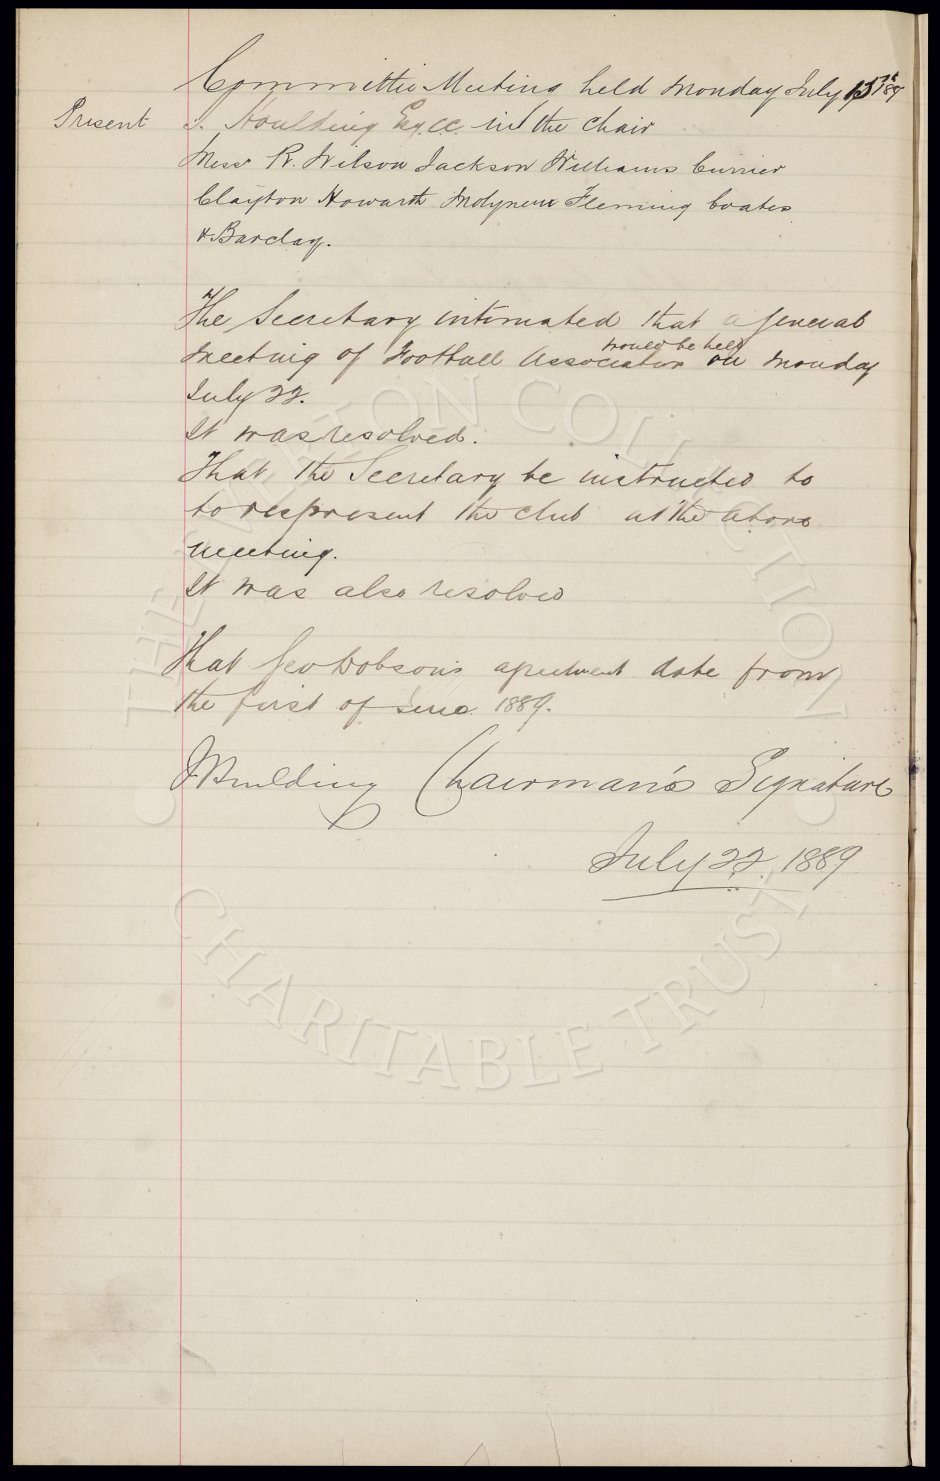 Committee Meeting held Monday July 15th /89
Present J. Houlding Esq. CC. in the Chair
Messr R. Wilson Jackson Williams Currier
Clayton Howarth Molyneux Fleming Coates
& Barclay.
The Secretary intimated that a general
would be held
meeting of Football Association on Monday
July 22.
It was resolved.
That the Secretary be instructed to
to respresent the club at the above
meeting.
It was also resolved
That Geo Dobson's agreement date from
the first of June 1889.
JHoulding Chairman's Signature
July 22. 1889
THE EVERTON COLLECTION
CHARITABLE TRUST